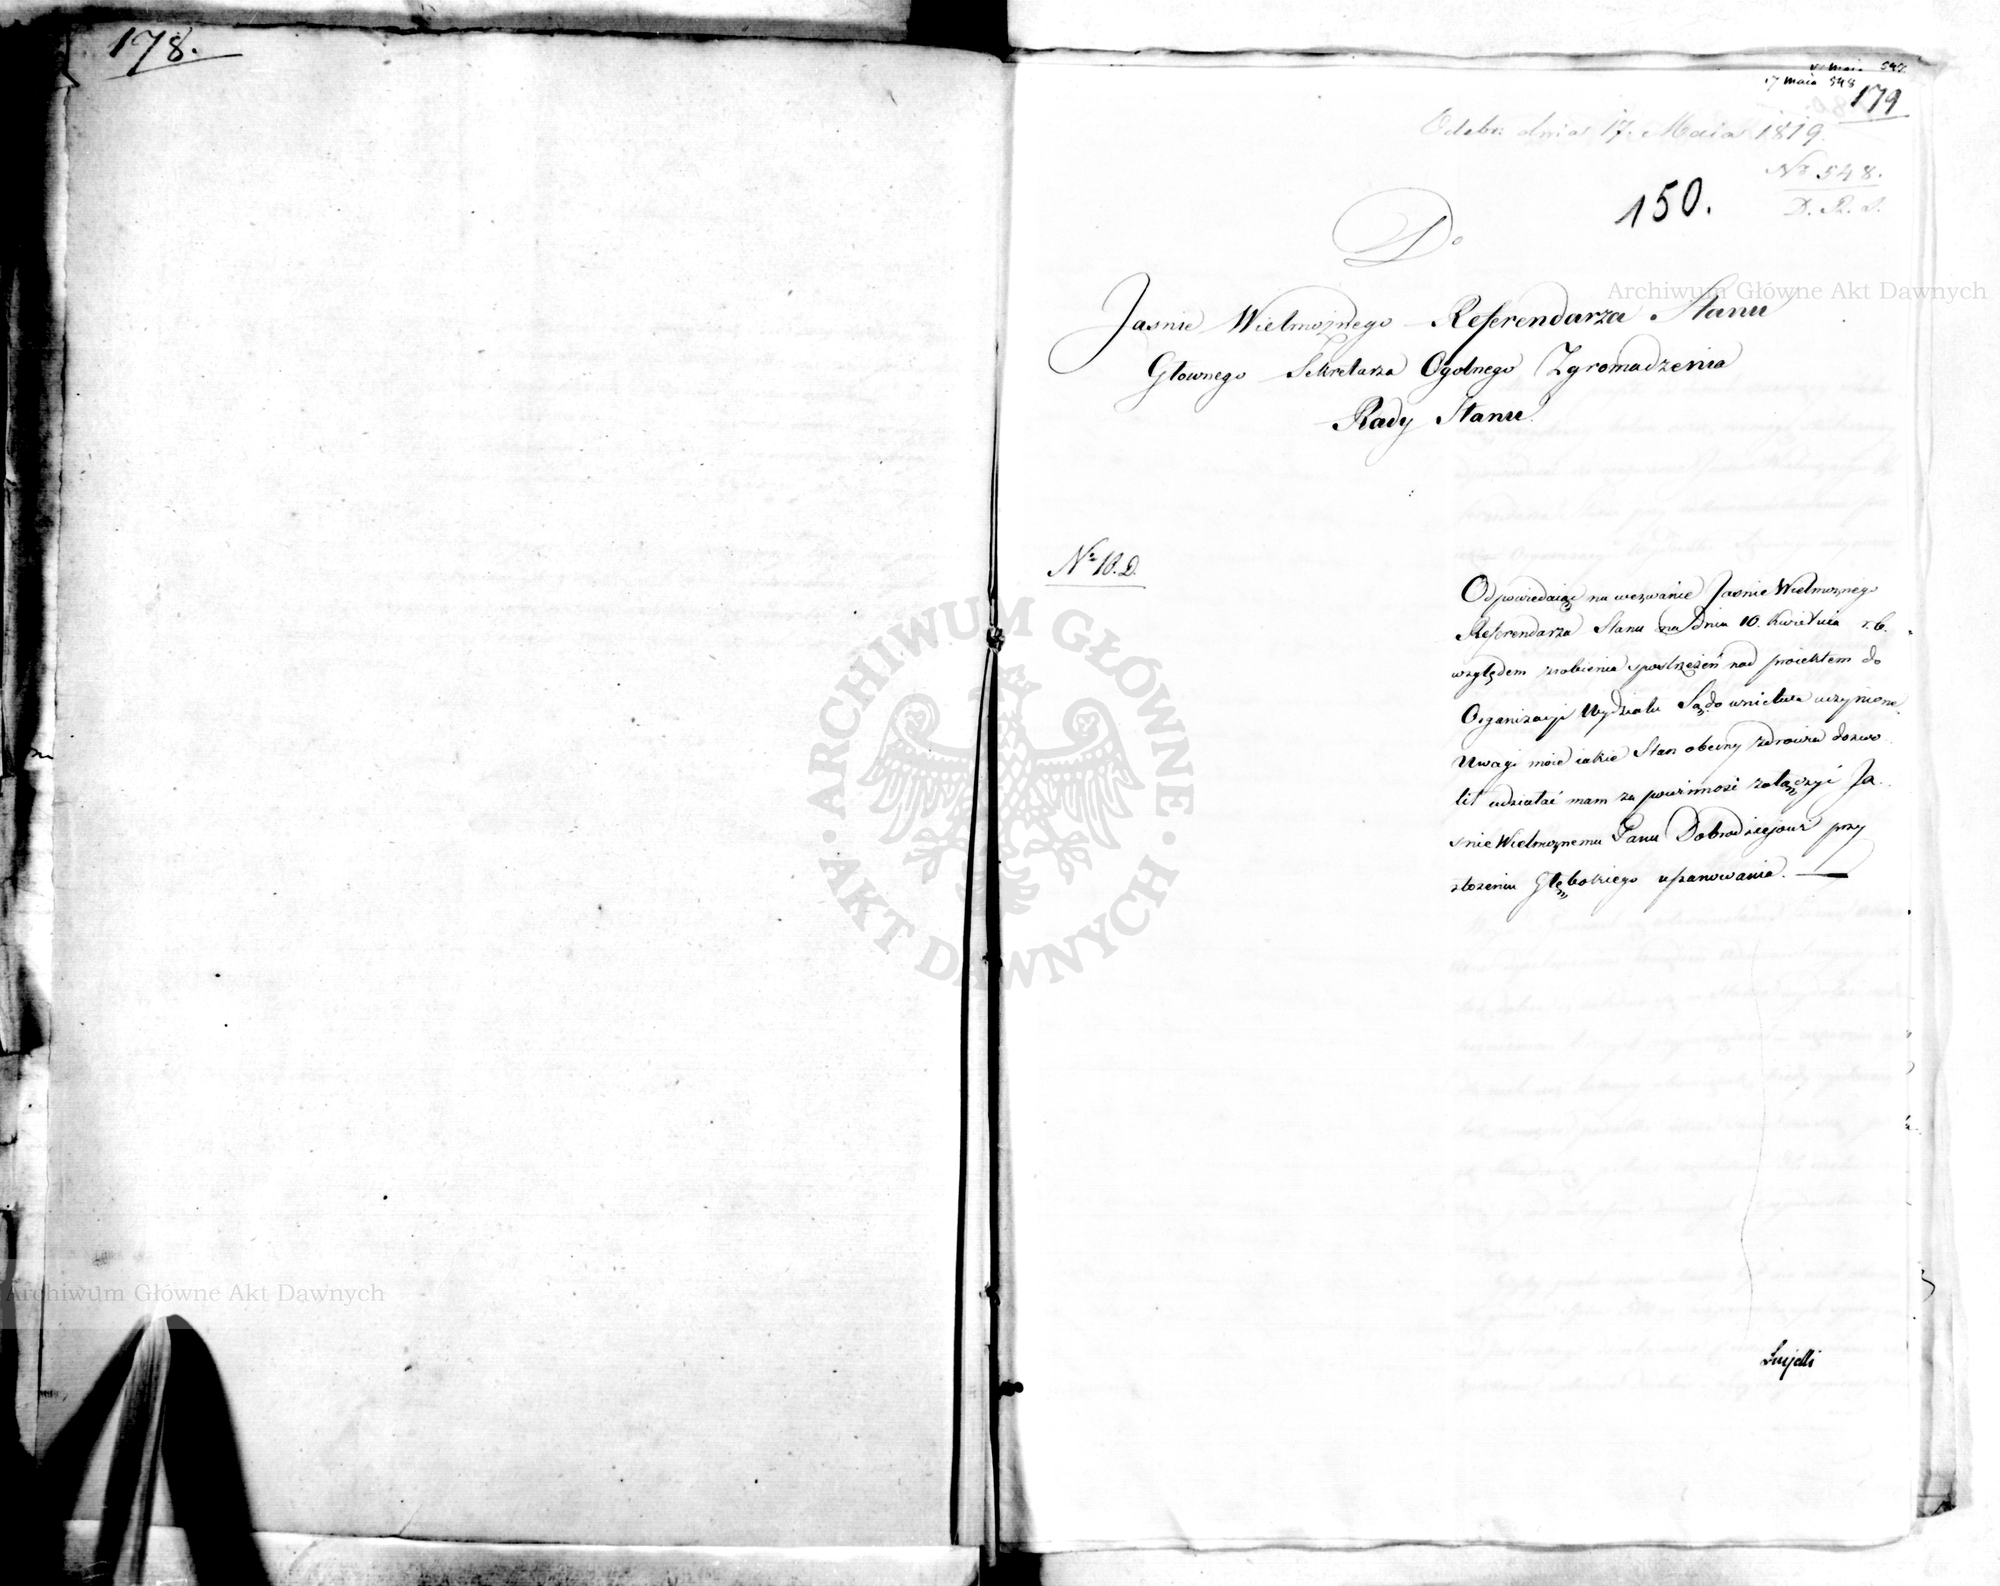 178.
17 maia 548
179
Odebr: dnia 17. Maia 1819.
No 548.
D. R. S.
150.
Do
Jasnie Wielmożnego Referendarza Stanu
Głownego Sekretarza Ogolnego Zgromadzenia
Rady Stanu.
No 18. D.
Odpowiedaiąc na wezwanie Jasnie Wielmożnego
Referendarza Stanu na dniu 10. Kwietnia r. b.
względem zrobienia spostrzeżeń nad proiektem do
Organizacyi Wydziału Sądownictwa uczynione
Uwagi moie iakie Stan obecny zdrowia dozwo
lił udziałać mam za powinność załączyć Ja
snie Wielmożnemu Panu Dobrodziejowi przy
złożeniu Głębokiego uszanowania.
Archiwum Główne Akt Dawnych
Archiwum Główne Akt Dawnych
ARCHIWUM GŁÓWNE
AKT DAWNYCH